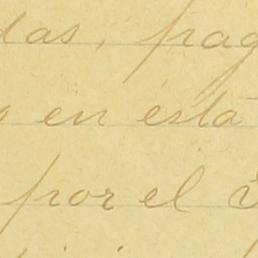 das, pag
en ésta
por el